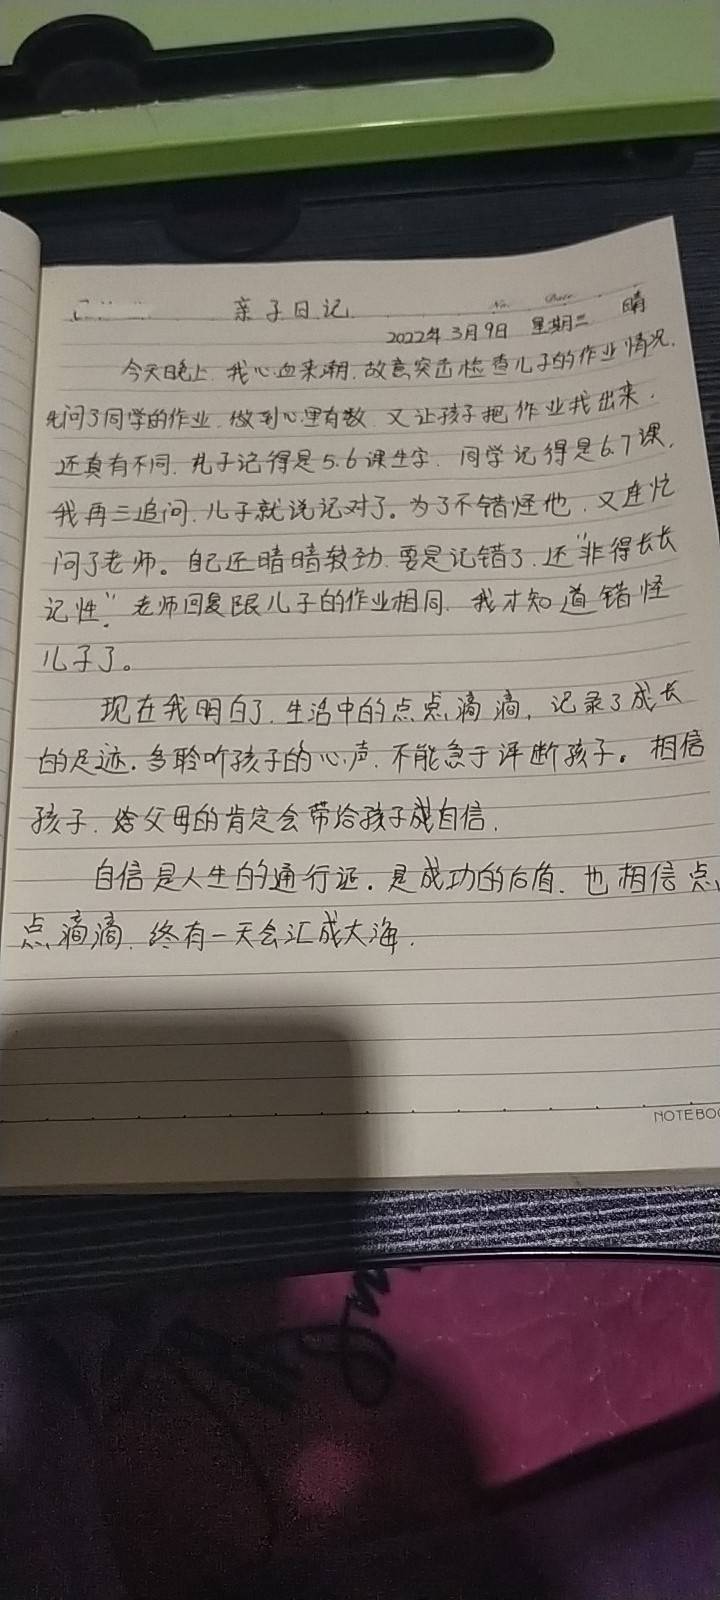 亲子日记
No. Date
2022年3月9日 星期三 晴
今天晚上,我心血来潮,故意突击检查儿子的作业情况,
先问了同学的作业,做到心里有数,又让孩子把作业找出来.
还真有不同,儿子记得是5.6课生字,同学记得是6.7课,
我再三追问,儿子就说记对了。为了不错怪他,又连忙
问了老师。自己还暗暗较劲,要是记错了,还“非得长长
记性”.老师回复跟儿子的作业相同,我才知道错怪
儿子了。
现在我明白了,生活中的点点滴滴,记录了成长
的足迹.多聆听孩子的心声,不能急于评断孩子。相信
孩子,给父母的肯定会带给孩子成自信.
自信是人生的通行证.是成功的后盾,也相信点
点滴滴,终有一天会汇成大海.